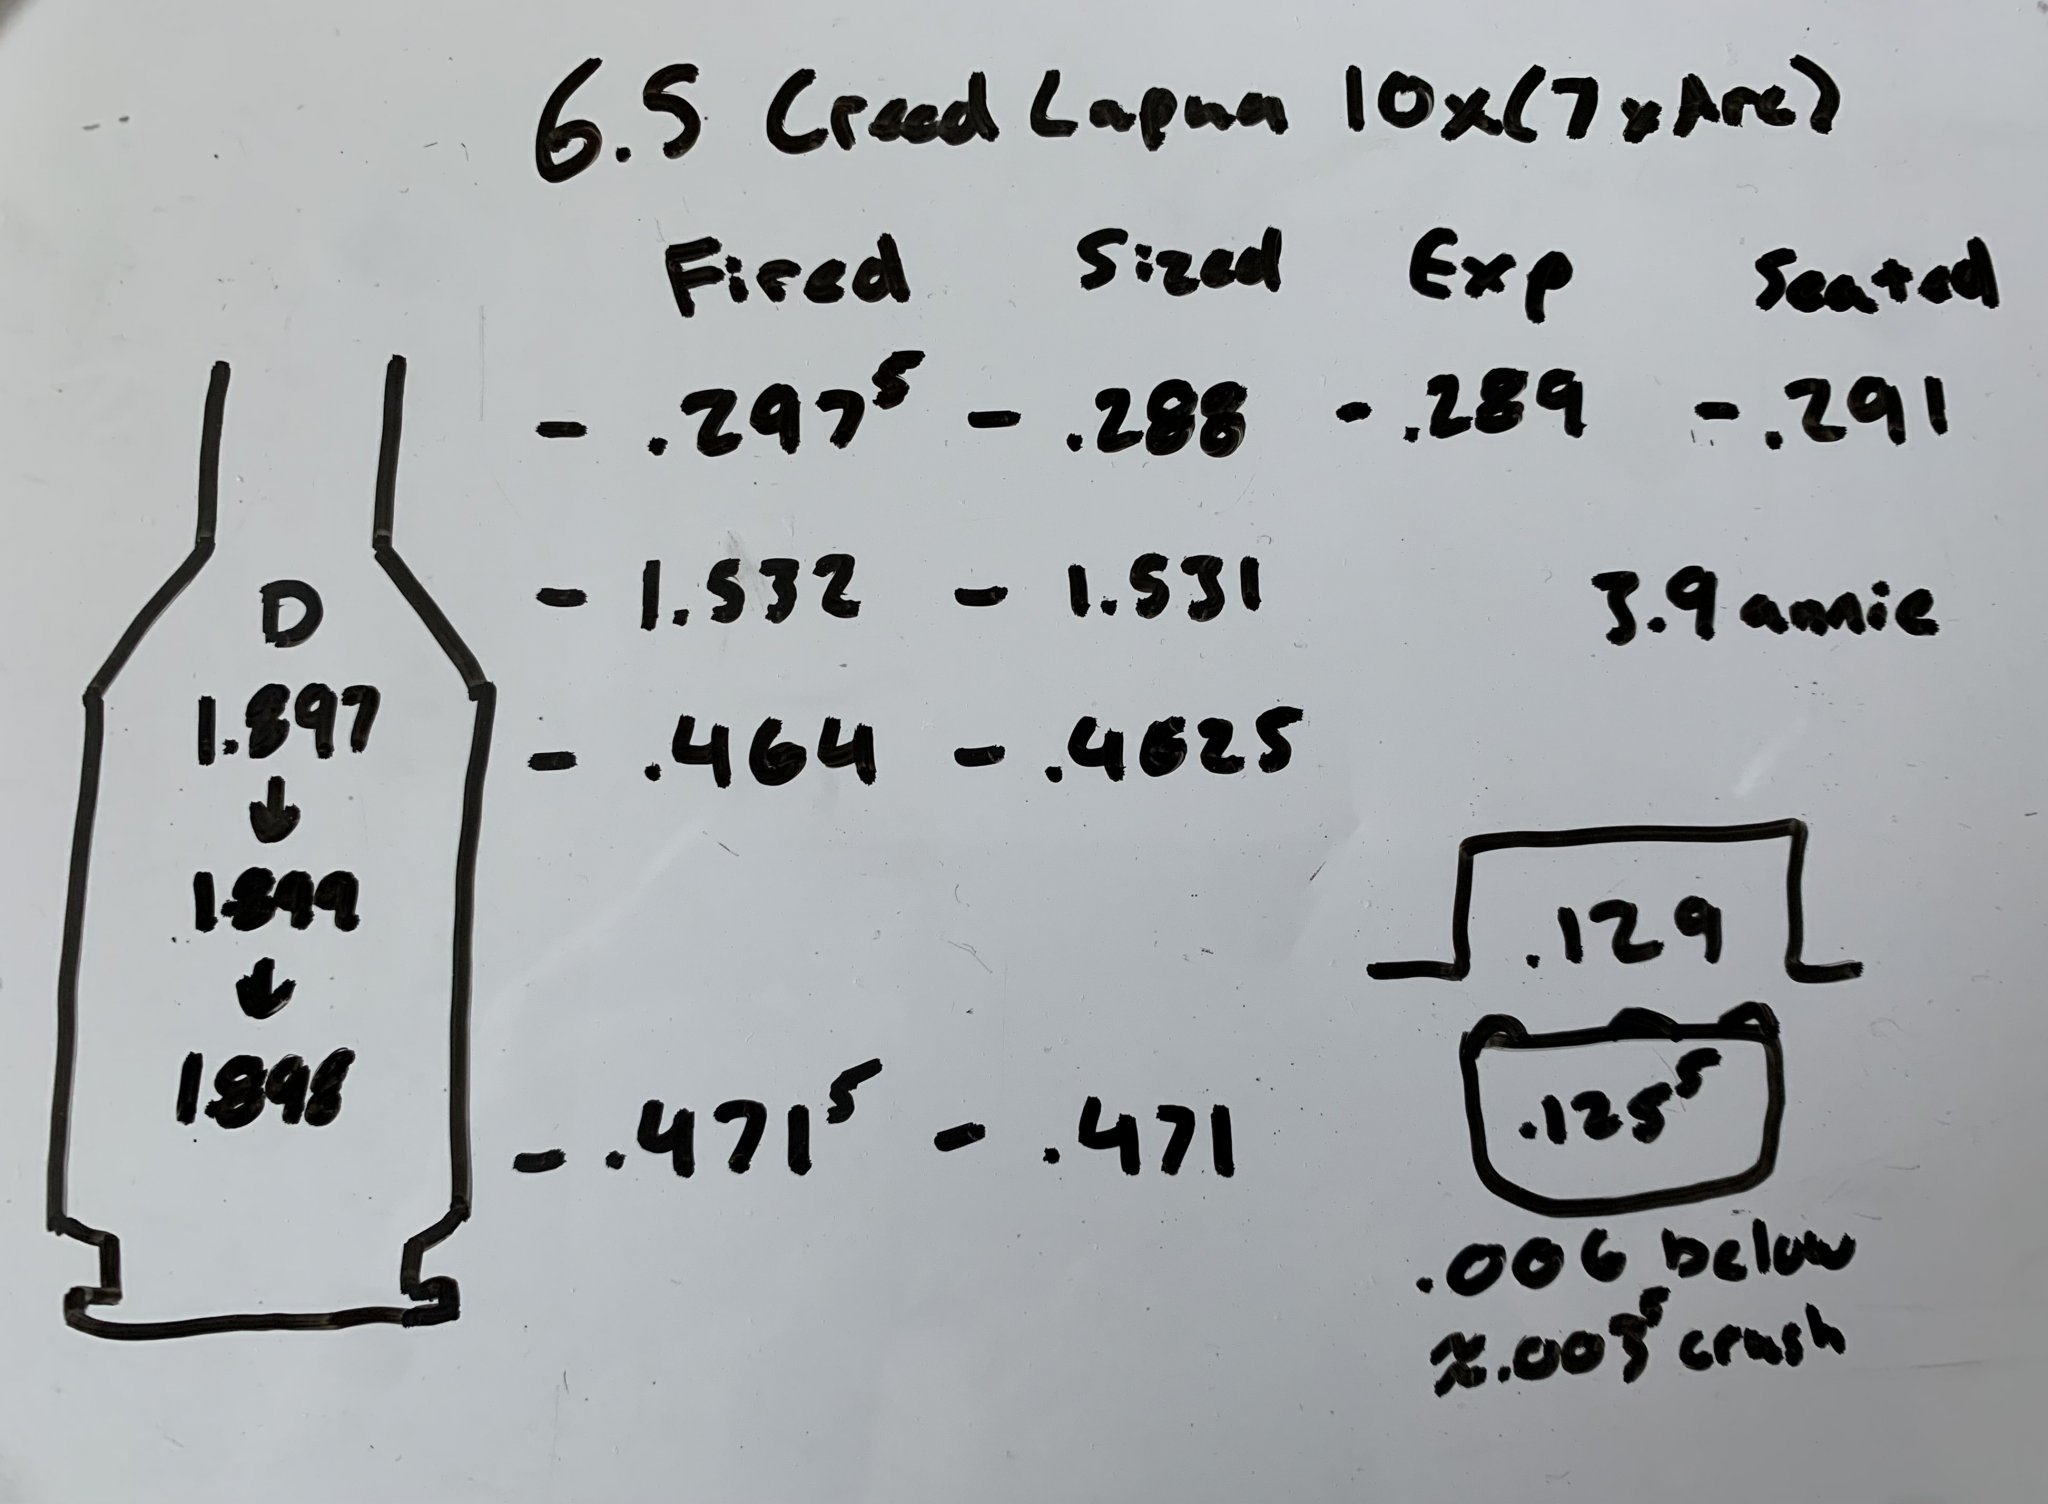 6.5 Creed Lapua 10x(7xAre)
Fired Sized Exp Seated
- .297⁵ - .288 - .289 - .291
D
- 1.532 - 1.531
3.9 annie
1.897
- .464 - .4625
↓
1.899
.129
↓
1.898
- .471⁵ - .471
.125⁵
.006 below
≈.003⁵ crush